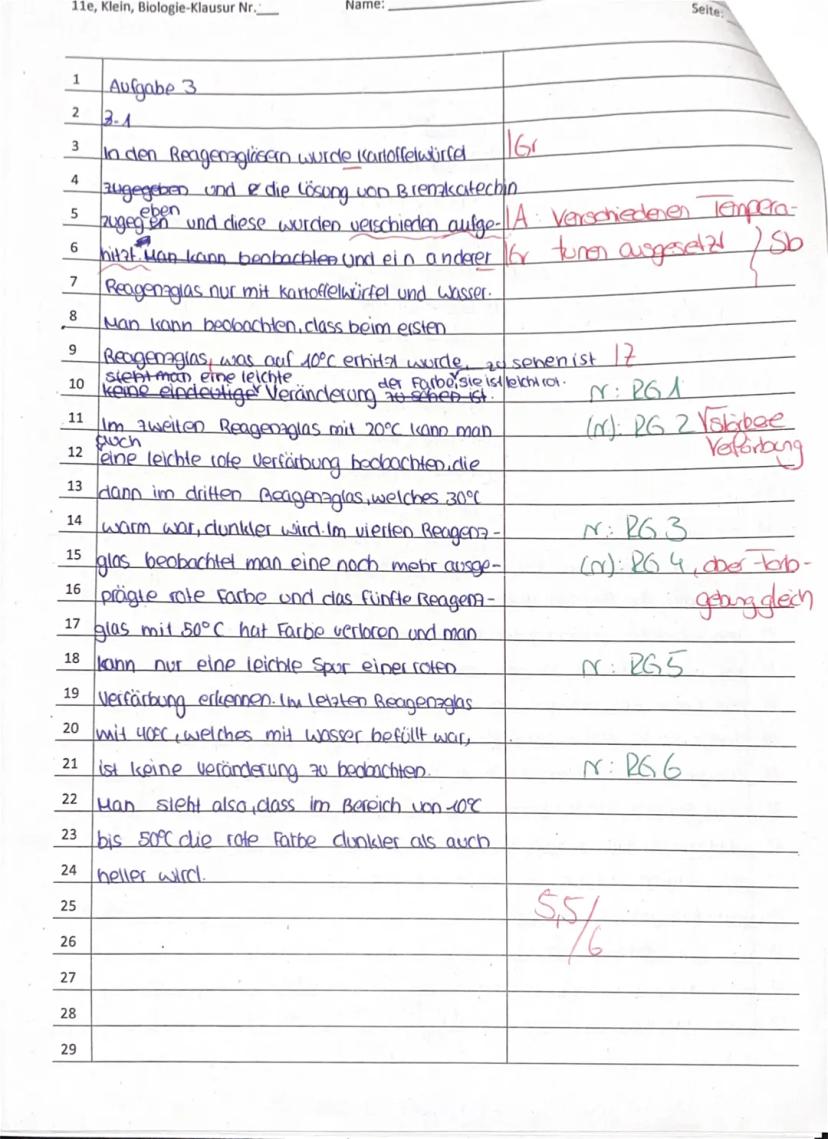 11e, Klein, Biologie-Klausur Nr.___ Name: ___ Seite:
1 Aufgabe 3
2 3.1
3 In den Reagenzgläsern wurde Kartoffelwürfel |Gr
4 zugegeben und die Lösung von Brenzkatechin
5 zugegeben und diese wurden verschieden aufge- |A: Verschiedenen Tempera-
6 hitzt. Man kann beobachten und ein anderer |Gr turen ausgesetzt } Sb
7 Reagenzglas nur mit Kartoffelwürfel und Wasser.
8 Man kann beobachten, dass beim ersten
9 Reagenzglas, was auf 10°C erhitzt wurde, zu sehen ist |Z
sieht man eine leichte der Farbe, sie ist leicht rot.
10 keine eindeutige Veränderung zu sehen ist. r: RG 1
11 Im zweiten Reagenzglas mit 20°C kann man (r): RG 2 √stärkere
auch Verfärbung
12 eine leichte rote Verfärbung beobachten, die
13 dann im dritten Reagenzglas, welches 30°C
14 warm war, dunkler wird. Im vierten Reagenz- r: RG 3
15 glas beobachtet man eine noch mehr ausge- (r): RG 4, aber Farb-
16 prägte rote Farbe und das fünfte Reagenz- gebung gleich
17 glas mit 50°C hat Farbe verloren und man
18 kann nur eine leichte Spur einer roten r: RG 5
19 Verfärbung erkennen. Im letzten Reagenzglas
20 mit 40°C, welches mit Wasser befüllt war,
21 ist keine Veränderung zu beobachten. r: RG 6
22 Man sieht also, dass im Bereich von 10°C
23 bis 50°C die rote Farbe dunkler als auch
24 heller wird.
25 5,5/
26 /6
27
28
29